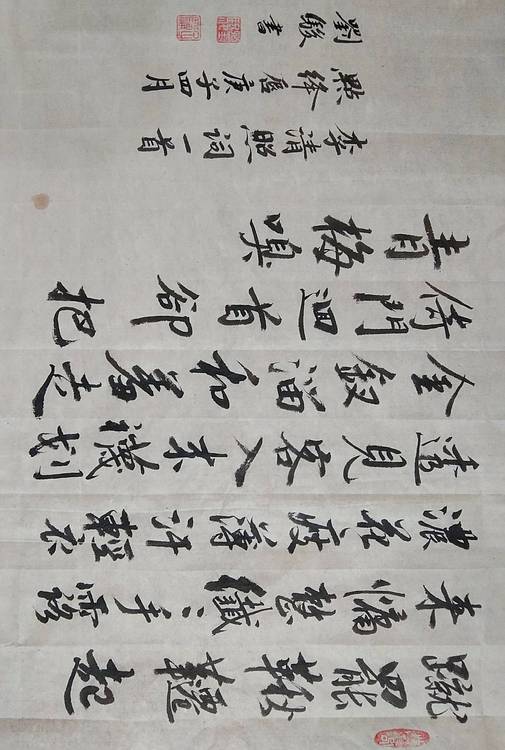 蹴罷鞦韆起
来慵整纖〻手露
濃花瘦薄汗輕衣
透見客入来襪刬
金釵溜和羞走
倚門迴首卻把
青梅嗅
李清照词一首
點絳唇庚子四月
劉駿書